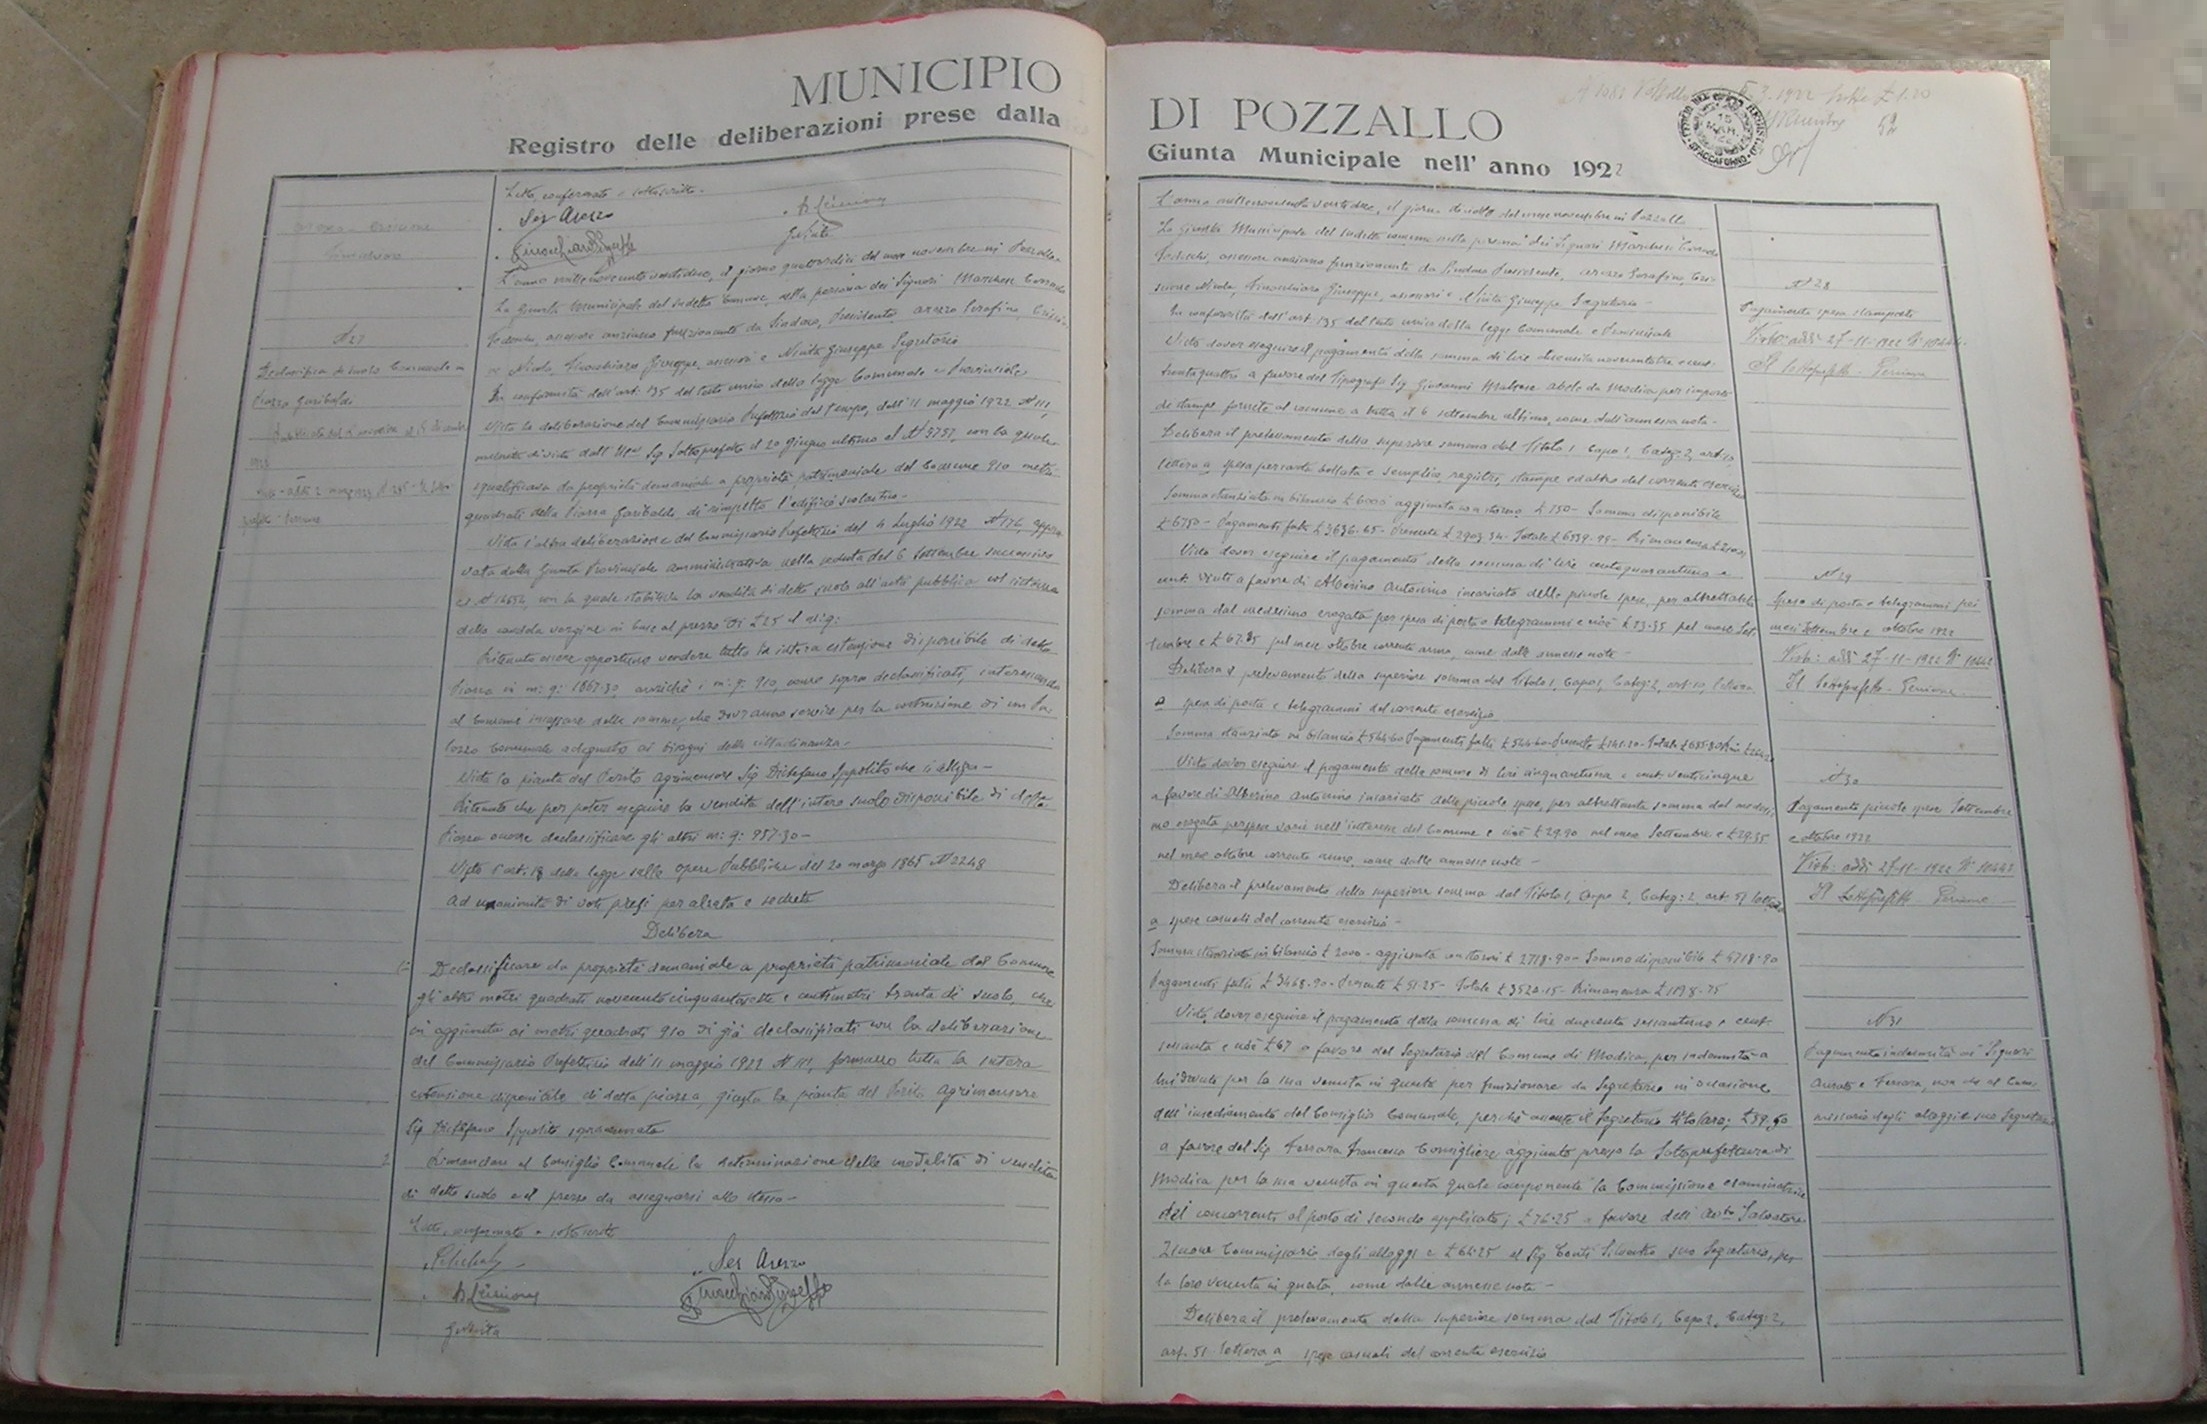 MUNICIPIO
Registro delle deliberazioni prese dalla
Letto, confermato e sottoscritto.
Ser Arezzo
G Nivita
L'anno millenovecento ventidue, il giorno quattordici del mese novembre in Pozzallo
La Giunta Municipale del sudetto Comune, nella persona dei Signori Marchese Corrado
assessore anziano funzionante da Sindaco, Presidente, Arezzo Serafino, Crisci-
ne Nicola, Finocchiaro Giuseppe, assessori e Nivita Giuseppe Segretario
In conformità dell'art. 135 del testo unico della legge Comunale e Provinciale
Vista la deliberazione del Commissario Prefettizio del tempo, dell'11 maggio 1922 N 111,
munita di visto dall'Ill Sig Sottoprefetto il 20 giugno ultimo al N 3757, con la quale
da proprietà demaniale a proprietà patrimoniale del Comune 910 metri
quadrati della Piazza Garibaldi, di rimpetto l'edificio scolastico.
Vista l'altra deliberazione del Commissario Prefettizio del 4 Luglio 1922 N 176, appro-
vata dalla Giunta Provinciale amministrativa nella seduta del 6 Settembre successivo
al N con la quale stabiliva la vendita di detto suolo all'asta pubblica col sistema
della candela vergine in base al prezzo di £ 25 il m:q:
Ritenuto essere opportuno vendere tutta la intera estensione disponibile di detta
Piazza in m: q: 1867.30 anzichè i m: q: 910, come sopra declassificati, interessando
al Comune incassare delle somme, che dovranno servire per la costruzione di un Pa-
lazzo Comunale adeguato ai bisogni della cittadinanza.
Vista la pianta del Perito agrimensore Sig Distefano Ippolito che si allega-
Ritenuto che per poter eseguire la vendita dell'intero suolo disponibile di detta
Piazza occorre declassificare gli altri m: q: 957.30-
Visto l'art. 18 della legge sulle opere Pubbliche del 20 marzo 1865 N 2248
Ad unanimità di voti presi per alzata e seduta
Delibera
1: Declassificare da proprietà demaniale a proprietà patrimoniale del Comune
gli altri metri quadrati novecentocinquantasette e centimetri trenta di suolo, che
in aggiunta ai metri quadrati 910 di già declassificati con la deliberazione
del Commissario Prefettizio dell'11 maggio 1922 N 111, formano tutta la intera
estensione disponibile di detta piazza, giusta la pianta del Perito agrimensore
Sig Distefano Ippolito
2 Rimandare al Consiglio Comunale la determinazione delle modalità di vendita
di detto suolo e il prezzo da assegnarsi allo stesso-
Letto, confermato e sottoscritto
Ser Arezzo
G Nivita
N 27
Declassifica di suolo Comunale in
Piazza Garibaldi
DI POZZALLO
Giunta Municipale nell'anno 1922
L'anno millenovecento ventidue, il giorno del mese novembre in Pozzallo
La Giunta Municipale del sudetto comune nella persona dei Signori Marchese Corrado
assessore anziano funzionante da Sindaco Presidente, Arezzo Serafino, Cris-
cione Nicola, Finocchiaro Giuseppe, assessori e Nivita Giuseppe Segretario-
In conformità dell'art. 135 del testo unico della legge Comunale e Provinciale
Visto dover eseguire il pagamento della somma di lire duemila novecentotre e cent.
trentaquattro a favore del Tipografo Sig Giovanni Maltese da Modica per importo
di stampe fornite al comune a tutto il 6 settembre ultimo, come dall'annessa nota-
Delibera il prelevamento della superiore somma dal Titolo 1 Capo 1, Categ: 2, art. 10,
lettera a spesa per carta bollata e semplice registri, stampe ed altro del corrente esercizio
Somma stanziata in bilancio £ 6000 aggiunta con storno £ 750- Somma disponibile
£ 6750- Pagamenti fatti £ 3636.65- Presente £ 2903.34- Totale £ 6539.99- Rimanenza £ 210.01
Visto dover eseguire il pagamento della somma di lire centoquarantuna e
cent. venti a favore di Alberino Antonino incaricato delle piccole spese, per altrettanta
somma dal medesimo erogata per spesa di posta e telegrammi e cioè £ 73.35 pel mese Set-
tembre e £ 67.85 pel mese ottobre corrente anno, come dalle annesse note-
Delibera il prelevamento della superiore somma dal Titolo 1, Capo 1, Categ: 2, art. 10, lettera
a spesa di posta e telegrammi del corrente esercizio
Visto dover eseguire il pagamento della somma di lire cinquantuna e cent. venticinque
a favore di Alberino Antonino incaricato delle piccole spese, per altrettanta somma dal medesi-
mo erogata per spese varie nell'interesse del Comune e cioè £ 21.90 nel mese Settembre e £ 29.35
nel mese ottobre corrente anno, come dalle annesse note-
Delibera il prelevamento della superiore somma dal Titolo 1, Capo 2, Categ: 2, art. 51 lettera
a spese casuali del corrente esercizio-
Somma stanziata in bilancio £ 2000- aggiunta con storni £ 2718.90- Somma disponibile £ 4718.90
Pagamenti fatti £ 3468.90- Presente £ 51.25- Totale £ 3520.15- Rimanenza £ 1198.75
Visto dover eseguire il pagamento della somma di lire duecento sessantuna e cent.
sessanta e cioè £ 67 a favore del Segretario del Comune di Modica, per indennità a
lui dovuta per la sua venuta in questa per funzionare da Segretario in occasione
dell'insediamento del Consiglio Comunale, perchè assente il Segretario titolare; £ 39,60
a favore del Sig Ferrara Francesco Consigliere aggiunto presso la Sottoprefettura di
Modica per la sua venuta in questa quale componente la Commissione esaminatrice
dei concorrenti al posto di secondo applicato; £ 76.25 a favore dell' Salvatore
Commissario degli alloggi e £ 64.25 al Sig Conti Silvestro suo Segretario, per
la loro venuta in questa, come dalle annesse note-
Delibera il prelevamento della superiore somma dal Titolo 1, Capo 2, Categ: 2,
art. 51 lettera a spese casuali del corrente esercizio
N 28
Pagamento spesa stampati
Visto: addì 27-11-1922 N
Il Sottoprefetto
N 29
Spesa di posta e telegrammi pei
mesi Settembre e ottobre 1922
Visto: addì 27-11-1922 N 10442
Il Sottoprefetto
N 30
Pagamento piccole spese Settembre
e ottobre 1922
Visto: addì 27-11-1922 N 10443
Il Sottoprefetto
N 31
Pagamento indennità ai Signori
e Ferrara, non che al Com-
missario degli alloggi e suo Segretario